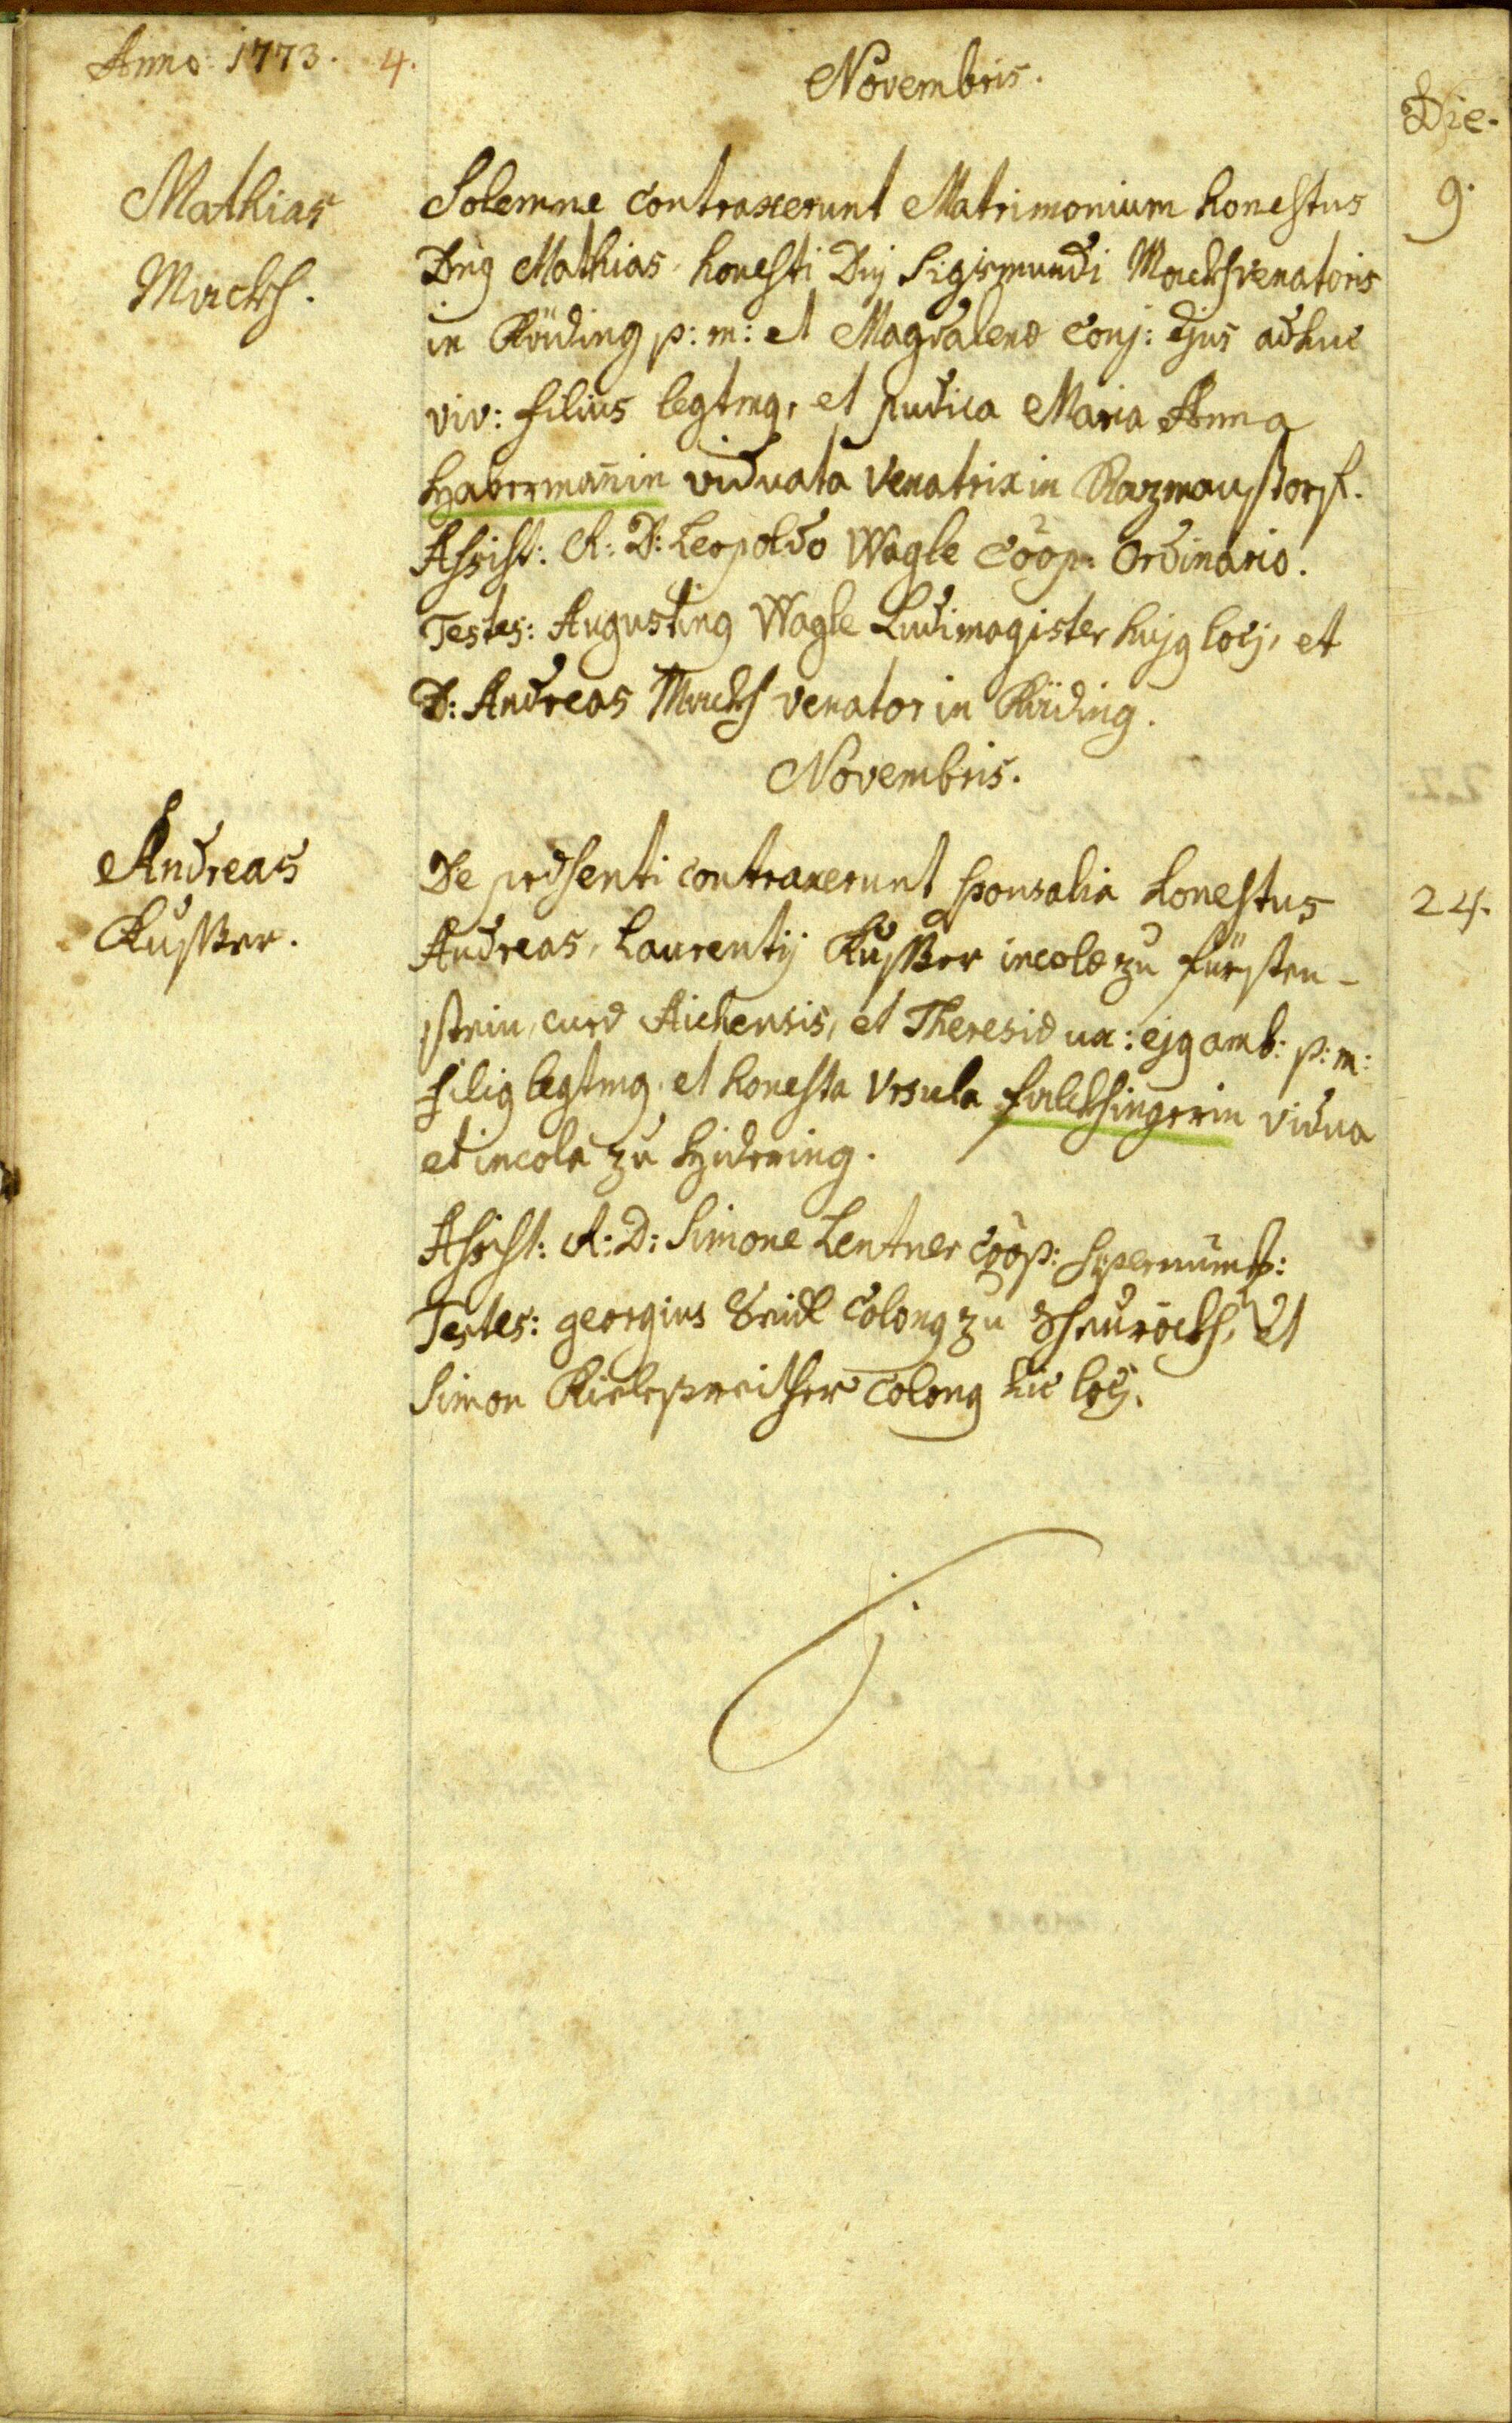 Anno 1773. 4.
Novembris.
Die.
Mathias
Macks.
Solemne contraxerunt Matrimonium honestus
Dng Mathias, honesti Dnj Sigismundi Macks venatoris
in Röding p: m: et Magdalenæ conj: ejus adhuc
viv: filius legtmg, et pudica Maria Anna
Habermañin viduata venatrix in Razmanstorf.
Assist: A: R: D: Leopoldo Wagle Coop: Ordinario.
Testes: Augusting Wagle Ludimagister hujg locj, et
D: Andreas Macks venator in Röding.
9.
Novembris.
Andreas
Kusser.
De præsenti contraxerunt sponsalia honestus
Andreas, Laurentij Kusser incolæ zu Fürsten-
stein, curæ Aichensis, et Theresiæ ux: ejg amb: p: m:
filig legtmg, et honesta Ursula vidua
et incola zu
Assist: A: R: D: Simone Lentner Coop: Supernum:
Testes: georgius Seidl Colong zu et
Simon Colong hic locj.
24.